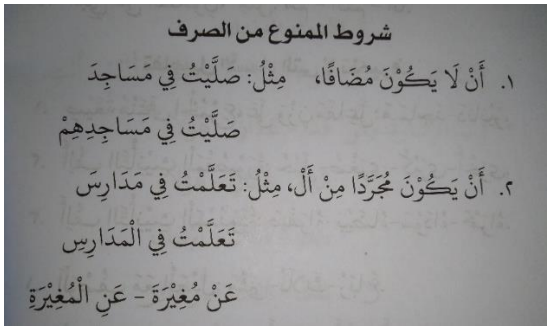 شروط الممنوع من الصرف
١. أَنْ لَا يَكُوْنَ مُضَافًا، مِثْلُ: صَلَّيْتُ فِي مَسَاجِدَ
صَلَّيْتُ فِي مَسَاجِدِهِمْ
٢. أَنْ يَكُوْنَ مُجَرَّدًا مِنْ أَلْ، مِثْلُ: تَعَلَّمْتُ فِي مَدَارِسَ
تَعَلَّمْتُ فِي الْمَدَارِسِ
عَنْ مُغِيْرَةَ - عَنِ الْمُغِيْرَةِ